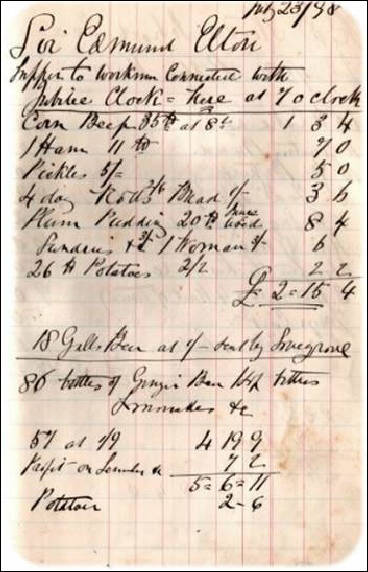 July 23/98
Sir Edmund Elton
Supper to workmen Connected with
Jubilee Clock = Here at 7 o clock
Corn Beef 35 lb at 8d 1 3 4
1 Ham 11 lb 7 0
Pickles 5/- 5 0
4 doz Rolls 2/6 Bread 1/- 3 6
Plum Pudding 20 lb Sauce 8 4
Sundries &c 1 Woman 6
26 lb Potatoes 2/2 2 2
£ 2=15 4
18 Galls Beer at 1/- sent by Lovegrove
86 bottles of Ginger Beer bottles
Lemonades &c
57 at 1/9 4 19 9
Profit on &c 7 2
5=6=11
Potatoes 2-6